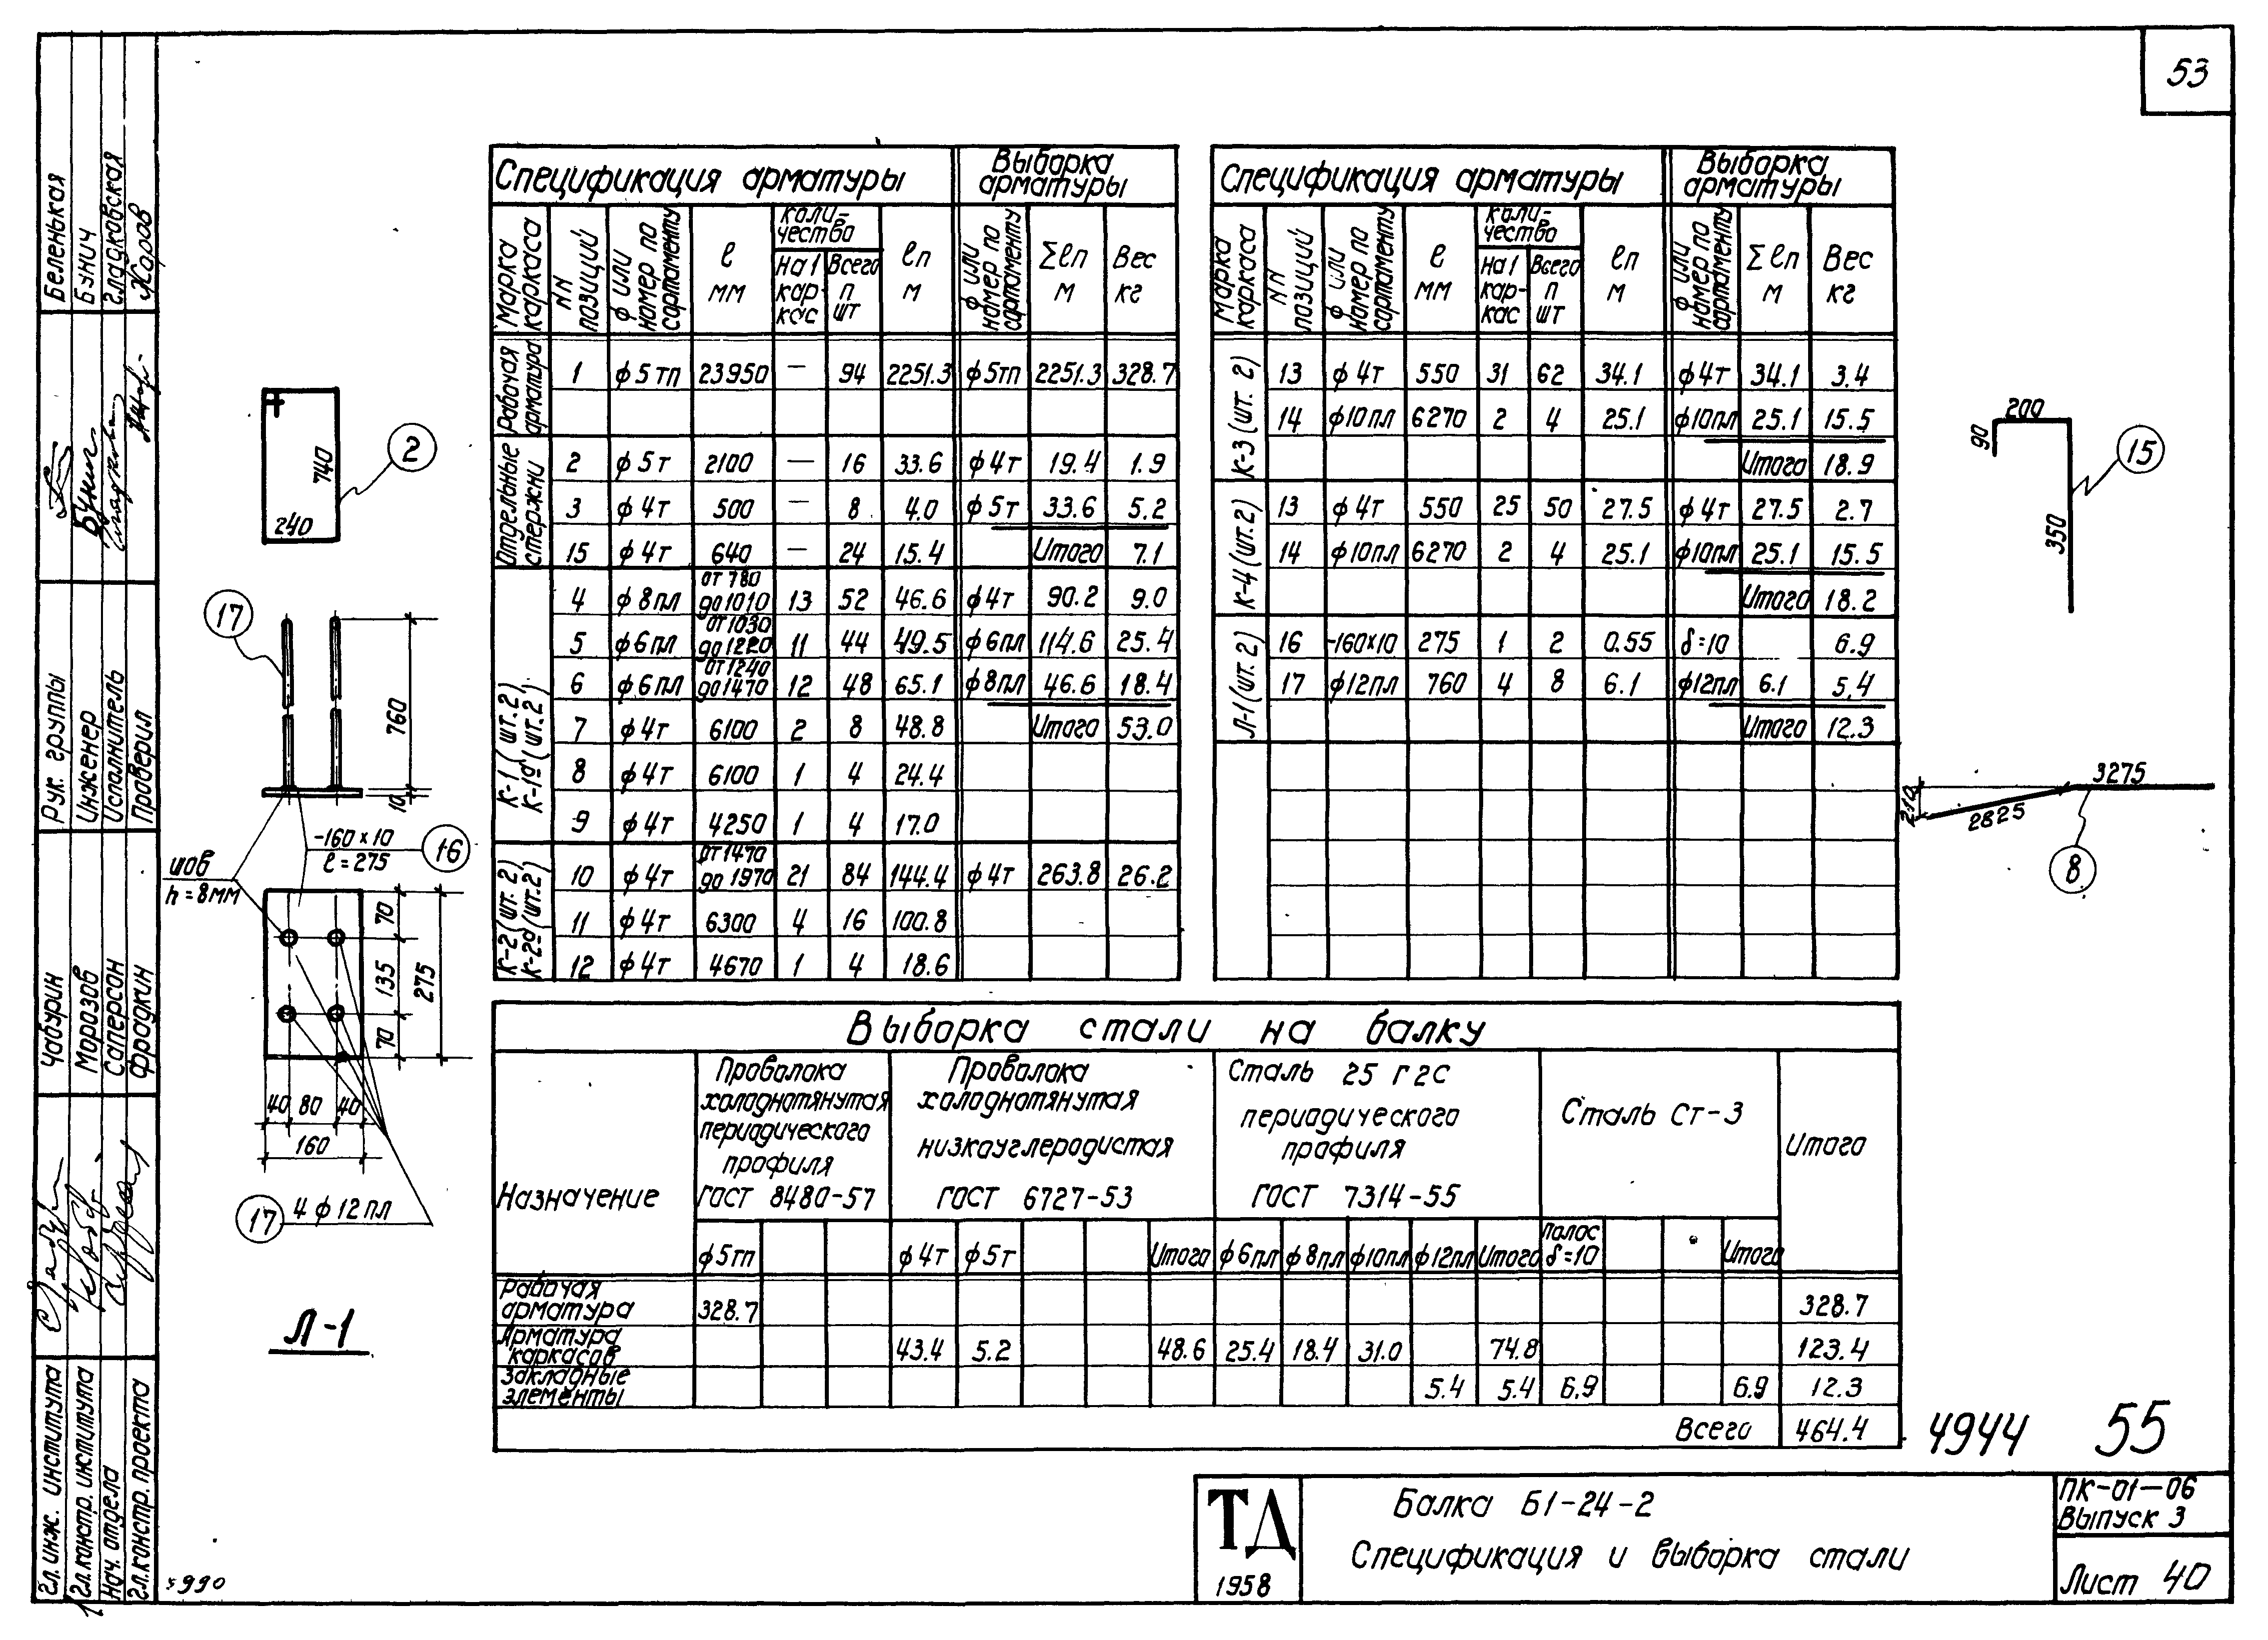 53
Спецификация арматуры
Выборка арматуры
Марка каркаса
NN позиций
ф или номер по сортаменту
l мм
Количество
На 1 каркас
Всего п шт
lп м
ф или номер по сортаменту
Σlп м
Вес кг
Рабочая арматура
1 ф5тп 23950 — 94 2251.3 ф5тп 2251.3 328.7
Отдельные стержни
2 ф5т 2100 — 16 33.6 ф4т 19.4 1.9
3 ф4т 500 — 8 4.0 ф5т 33.6 5.2
15 ф4т 640 — 24 15.4 Итого 7.1
К-1 (шт. 2)
К-1а (шт. 2)
4 ф8пл от 780 до 1010 13 52 46.6 ф4т 90.2 9.0
5 ф6пл от 1030 до 1220 11 44 49.5 ф6пл 114.6 25.4
6 ф6пл от 1240 до 1470 12 48 65.1 ф8пл 46.6 18.4
7 ф4т 6100 2 8 48.8 Итого 53.0
8 ф4т 6100 1 4 24.4
9 ф4т 4250 1 4 17.0
К-2 (шт. 2)
К-2а (шт. 2)
10 ф4т от 1470 до 1970 21 84 144.4 ф4т 263.8 26.2
11 ф4т 6300 4 16 100.8
12 ф4т 4670 1 4 18.6
Спецификация арматуры
Выборка арматуры
Марка каркаса
NN позиций
ф или номер по сортаменту
l мм
Количество
На 1 каркас
Всего п шт
lп м
ф или номер по сортаменту
Σlп м
Вес кг
К-3 (шт. 2)
13 ф4т 550 31 62 34.1 ф4т 34.1 3.4
14 ф10пл 6270 2 4 25.1 ф10пл 25.1 15.5
Итого 18.9
К-4 (шт. 2)
13 ф4т 550 25 50 27.5 ф4т 27.5 2.7
14 ф10пл 6270 2 4 25.1 ф10пл 25.1 15.5
Итого 18.2
Л-1 (шт. 2)
16 -160×10 275 1 2 0.55 δ=10 6.9
17 ф12пл 760 4 8 6.1 ф12пл 6.1 5.4
Итого 12.3
740
240
2
17
760
10
-160×10
l=275
16
шов
h=8мм
70
135
70
275
40 80 40
160
17 4ф12пл
Л-1
200
90
350
15
3275
210
2825
8
Выборка стали на балку
Назначение
Проволока
холоднотянутая
периодического
профиля
ГОСТ 8480-57
Проволока
холоднотянутая
низкоуглеродистая
ГОСТ 6727-53
Сталь 25Г2С
периодического
профиля
ГОСТ 7314-55
Сталь Ст-3
Итого
ф5тп ф4т ф5т Итого ф6пл ф8пл ф10пл ф12пл Итого полос δ=10 Итого
Рабочая арматура 328.7 328.7
Арматура каркасов 43.4 5.2 48.6 25.4 18.4 31.0 74.8 123.4
Закладные элементы 5.4 5.4 6.9 6.9 12.3
Всего 464.4
4944 55
ТД
1958
Балка Б1-24-2
Спецификация и выборка стали
ПК-01-06
Выпуск 3
Лист 40
Беленькая
Бунич
Гладковская
Рук. группы
Инженер
Исполнитель
Проверил
Чабурин
Морозов
Саперсон
Фрадкин
Гл. инж. института
Гл. констр. института
Нач. отдела
Гл. констр. проекта